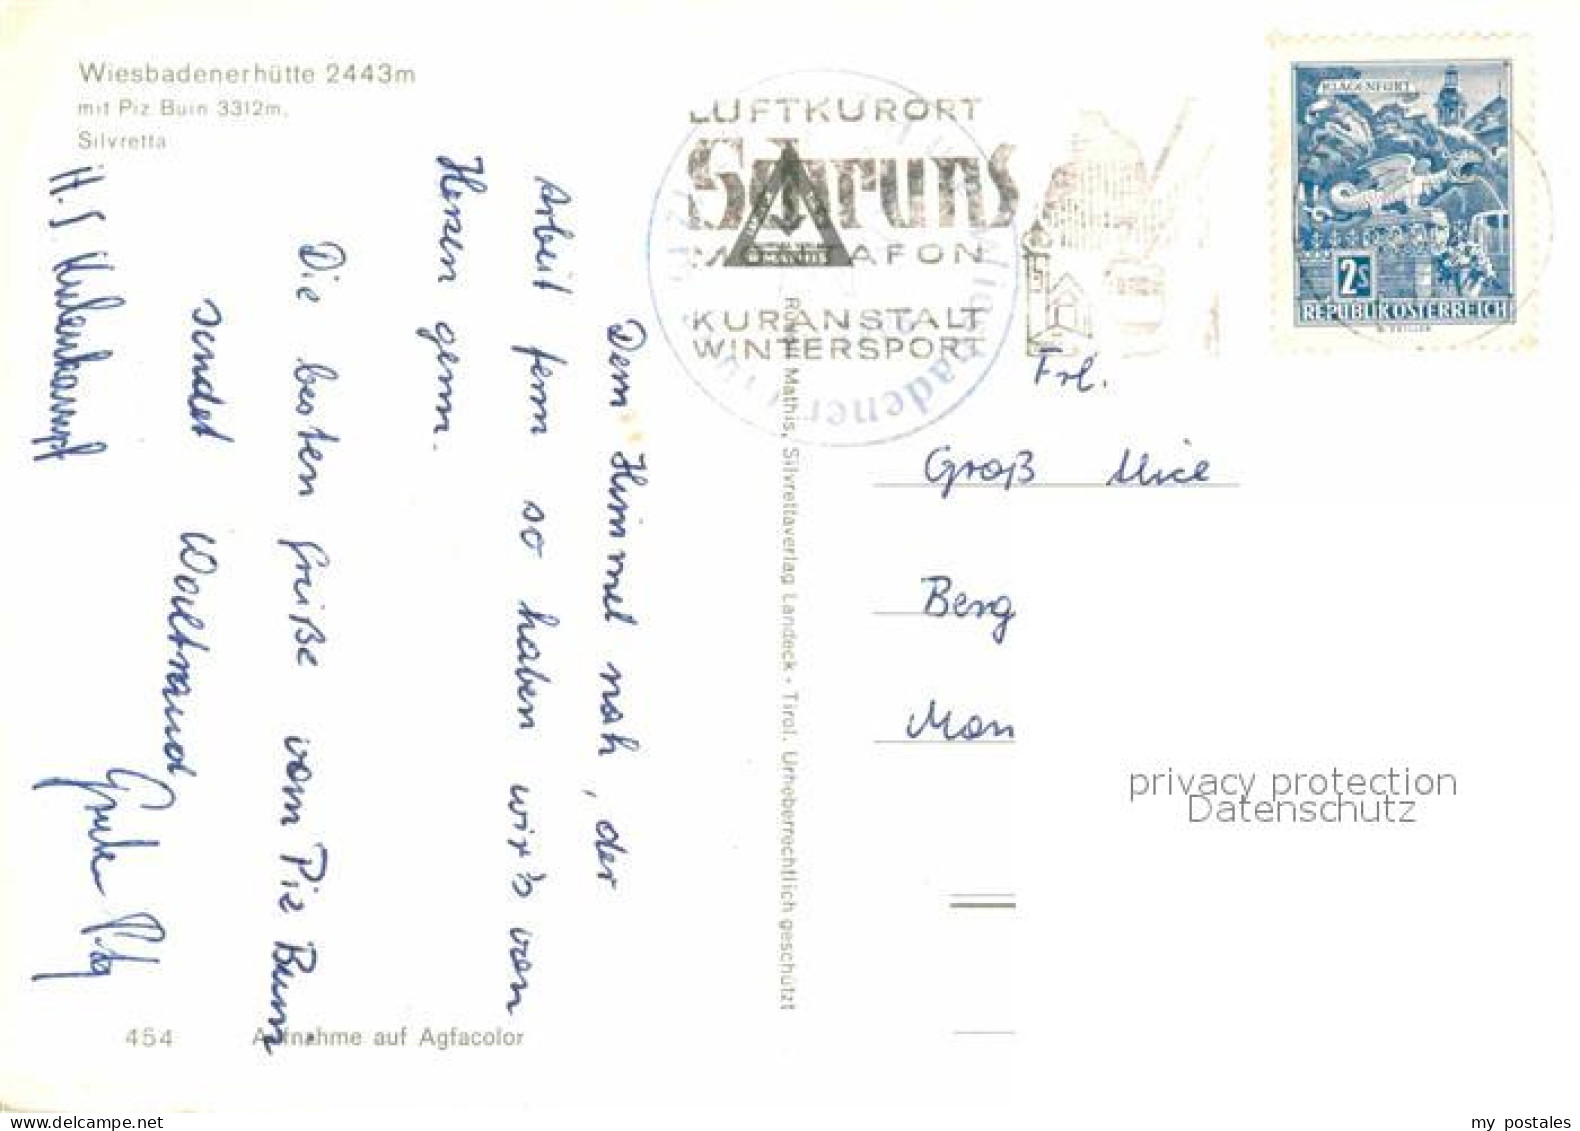 Wiesbadenerhütte 2443m
mit Piz Buin 3312m,
Silvretta
Dem Himmel nah, der
Arbeit fern so haben wir's von
Herzen gern.
Die besten Grüße vom Piz Buin
sendet Waltraud
H. S.
454 Aufnahme auf Agfacolor
Mathis, Silvrettaverlag Landeck - Tirol. Urheberrechtlich geschützt
LUFTKURORT
Schruns
MONTAFON
KURANSTALT
WINTERSPORT
MATHIS
Wiesbadener
KLAGENFURT
2S
REPUBLIK ÖSTERREICH
Frl.
Groß Alice
Berg
Mon
privacy protection
Datenschutz
my postales
www.delcampe.net